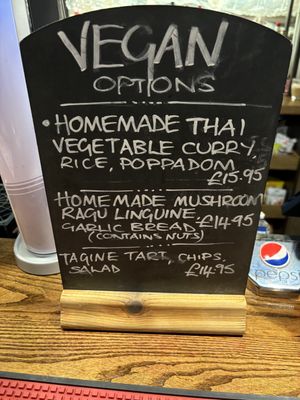 VEGAN
OPTIONS
HOMEMADE THAI
VEGETABLE CURRY,
RICE, POPPADOM
£15.95
HOMEMADE MUSHROOM
RAGU LINGUINE
£14.95
GARLIC BREAD
(CONTAINS NUTS)
TAGINE TART, CHIPS,
SALAD
£14.95
pepsi